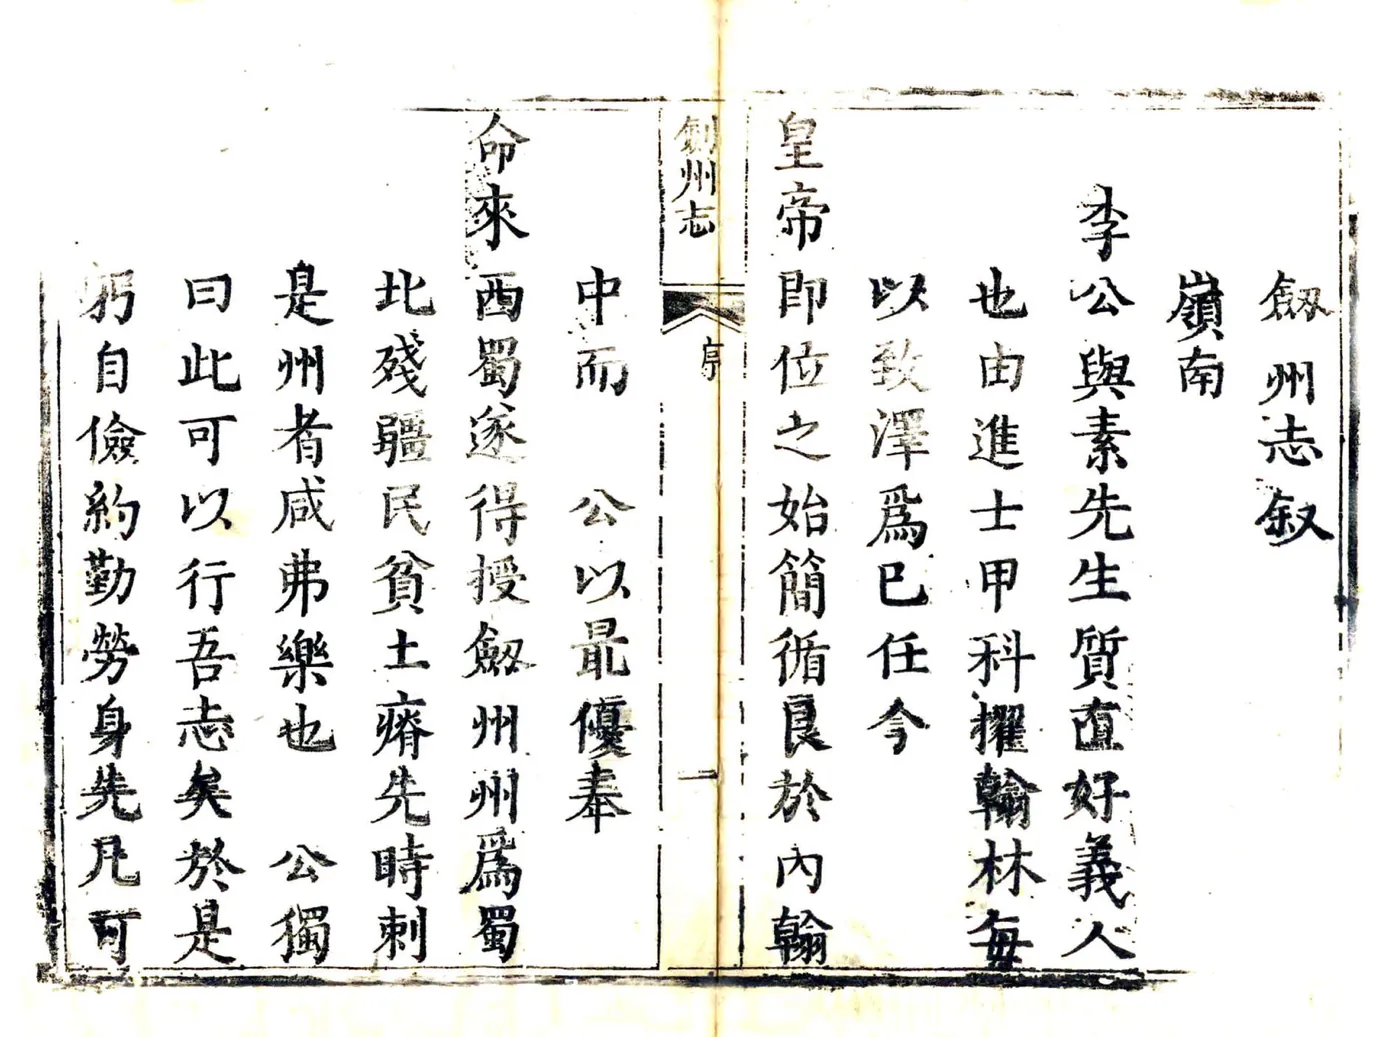 劔州志叙
嶺南
李公與素先生質直好義人
也由進士甲科擢翰林每
以致澤爲巳任今
皇帝即位之始簡循良於內翰
劍州志
序
一
中而　公以最優奉
命來西蜀遂得授劔州州爲蜀
北殘疆民貧土瘠先時刺
是州者咸弗樂也　公獨
曰此可以行吾志矣於是
躬自儉約勤勞身先凡可